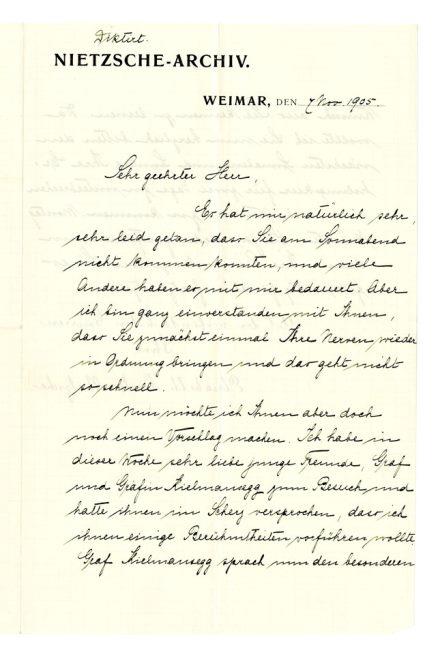 Diktirt.
NIETZSCHE-ARCHIV.
WEIMAR, DEN 7 Nov. 1905.
Sehr geehrter Herr,
Es hat mir natürlich sehr,
sehr leid getan, dass Sie am Sonnabend
nicht kommen konnten, und viele
Andere haben es mit mir bedauert. Aber
ich bin ganz einverstanden mit Ihnen,
dass Sie zunächst einmal Ihre Nerven wieder
in Ordnung bringen und das geht nicht
so schnell.
Nun möchte ich Ihnen aber doch
noch einen Vorschlag machen. Ich habe in
dieser Woche sehr liebe junge Freunde, Graf
und Gräfin Kielmansegg zum Besuch und
hatte ihnen im Scherz versprochen, dass ich
ihnen einige Berühmtheiten vorführen wollte.
Graf Kielmansegg sprach nun den besonderen